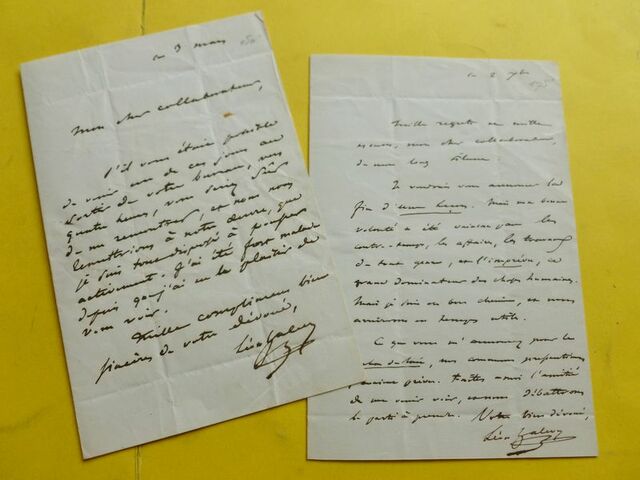 ce 3 mars
Mon cher collaborateur,
S'il vous était possible
de venir un de ces jours au
sortir de votre bureau, vers
quatre heures, vous seriez sûr
de me rencontrer, et nous nous
remettrions à notre œuvre, que
je suis tout disposé à pousser
activement. J'ai été fort malade
depuis que j'ai eu le plaisir de
vous voir.
Mille compliments bien
sincères de votre dévoué,
Léo
ce 2 7bre
Mille regrets et mille
excuses, mon cher collaborateur,
de mon long silence
Je voudrais vous annoncer la
fin d'une heure. Mais ma bonne
volonté a été vaincue par les
contre-temps, les affaires, les travaux
de tout genre, et l'imprévu, ce
grand dominateur des choses humaines.
Mais je suis en bon chemin, et nous
arriverons en temps utile.
Ce que vous m'annoncez pour le
nos communes
Faites-moi l'amitié
de me venir voir, nous débattrons
le parti à prendre. Votre bien dévoué,
Léo